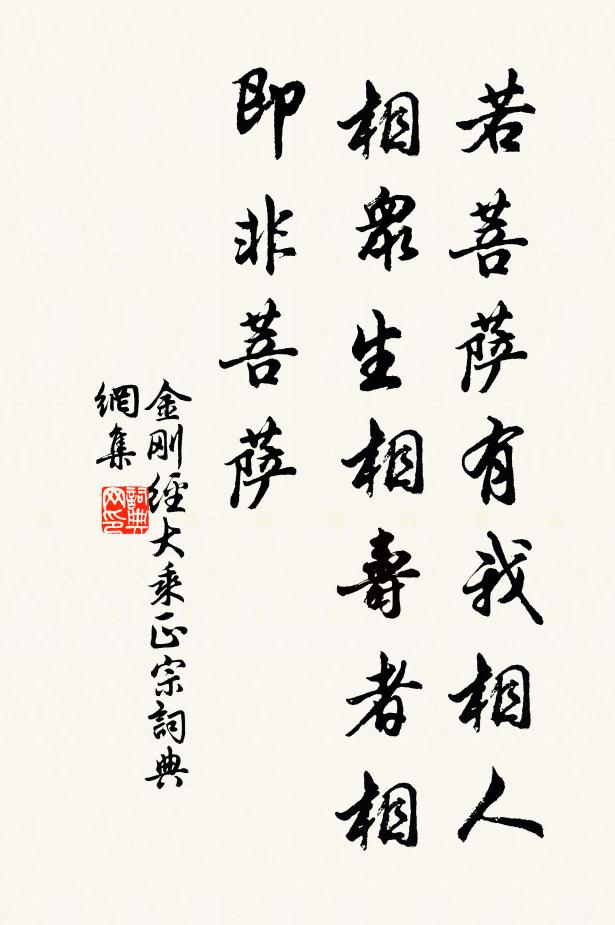 若菩薩有我相人
相眾生相壽者相
即非菩薩
金剛經大乘正宗詞典
網集
詞典
网印